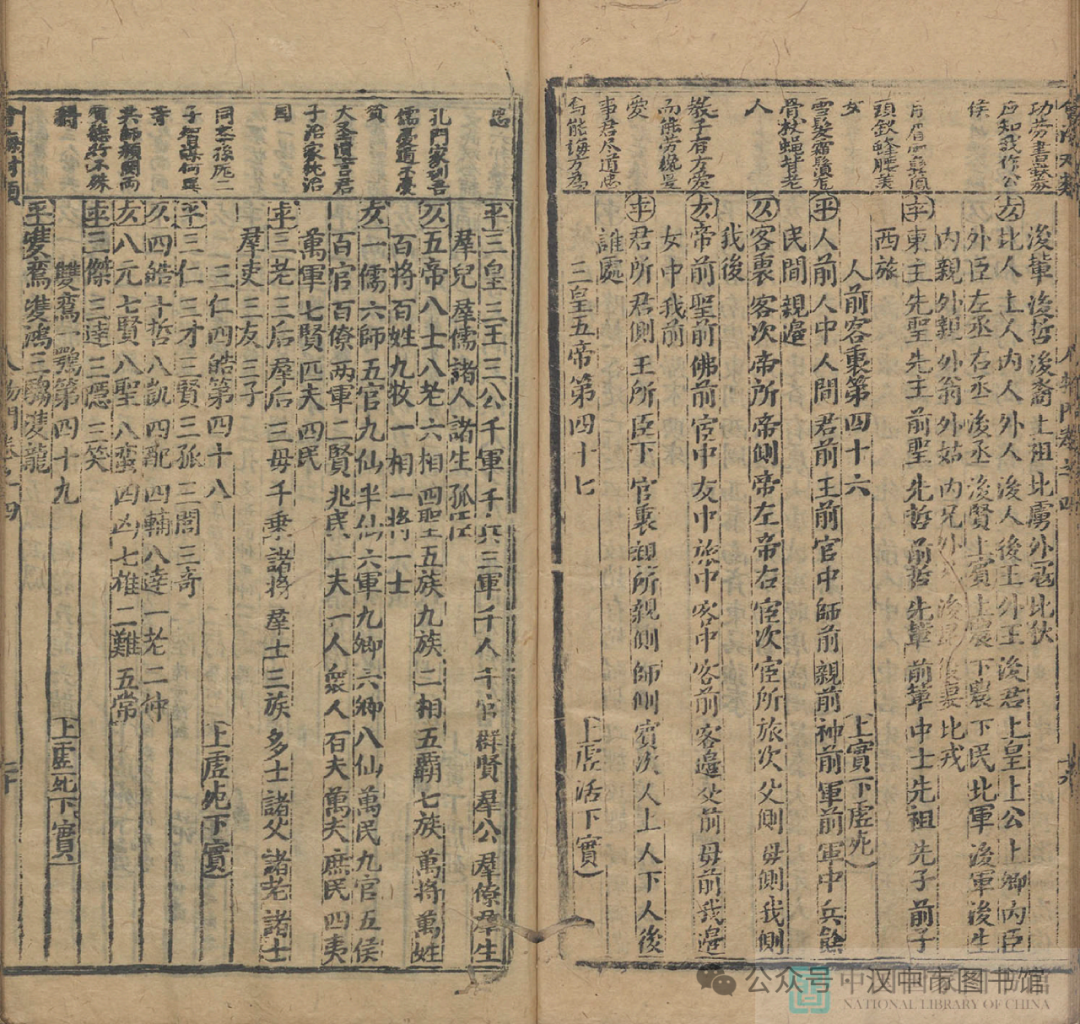 功勞晝獸
應知我作公
侯
頭釵蜂腰美
女
雲髮霜鬢
骨杖蝿背老
人
教子有方愛
而能勞
愛
事君尽道忠
焉能誨方為
後輩後哲後裔上祖比虜外舀比狄
比人上人内人外人後人後王外王後君上皇上公上卿内臣
外臣左丞右丞後丞後賢上賓上農下農下民比軍後軍後生
内親外親外翁外姑内兄外 比戎
東主先聖先主前聖先哲前哲先輩前輩中士先祖先子前子
西旅
人前客裏第四十六 上實下虛死
平 人前人中人間君前王前官中師前親前神前軍前軍中兵餘
民間親邊
仄 客裏客次帝所帝側帝左帝右宦次宦所旅次父側母側我側
我後
帝前聖前佛前宦中友中旅中客中客前客邊父前母前我邊
女中我前
君所君側王所臣下官裏親所親側師側賓次人上人下人後
誰處
三皇五帝第四十七 上虛活下實
忠
孔門家訓吾
儒憂道不憂
貧
大圣遺言君
子治家統治
國
同 後
子 謀何異
等
共師顔閔兩
賢
平 三皇三王三公千軍千兵三軍千人千官群賢羣公羣僚羣生
羣兒羣儒諸人諸生孤臣
仄 五帝八士八老六相四聖五族九族二相五覇七族萬將萬姓
百將百姓九牧一相一將一士
一儒六師五官九仙半仙六軍九卿六卿八仙萬民九官五侯
百官百僚兩軍二賢兆民一夫一人衆人百夫萬夫庶民四夷
萬軍七賢匹夫四民
三老三后羣后三毋千乗諸將羣士三族多士諸父諸老諸士
羣吏三友三子
三仁四皓第四十八 上虛死下實
平 三仁三才三賢三孤三閭三奇
仄 四皓十哲八凱四配四輔八逵一老二仲
八元七賢八聖八蠻四凶七雄二難五常
三傑三逵三隱三笑
雙鳶一鶚第四十九 上虛死下實
平 雙鳶雙鴻三鶚雙龍
公众号·中汉中市图书馆
NATIONAL LIBRARY OF CHINA